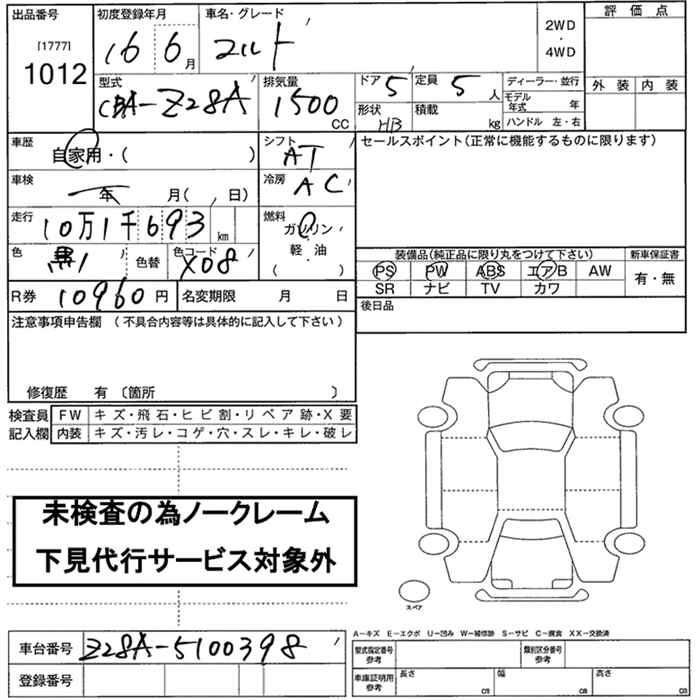 出品番号 初度登録年月 車名・グレード 評価点
[1777]
1012
16 6月 コルト
2WD
・
4WD
外装 内装
型式 排気量 ドア 定員 ディーラー・並行
CBA-Z28A 1500CC 5 5人
モデル年式 年
形状 積載
HB kg ハンドル 左・右
車歴 シフト セールスポイント(正常に機能するものに限ります)
自家用・( ) AT
車検 冷房
年 月( 、 日) AC
走行 燃料
10万1千693km ガソリン
・
軽・油
( )
色 色替 色コード
黒 X08
装備品(純正品に限り丸をつけて下さい) 新車保証書
PS PW ABS エアB AW 有・無
SR ナビ TV カワ
R券 10960円 名変期限 月 日 後日品
注意事項申告欄 (不具合内容等は具体的に記入して下さい)
修復歴 有 〔箇所 〕
検査員 FW キズ・飛石・ヒビ割・リペア跡・X要
記入欄 内装 キズ・汚レ・コゲ・穴・スレ・キレ・破レ
未検査の為ノークレーム
下見代行サービス対象外
スペア
A-キズ E-エクボ U-凹み W-補修跡 S-サビ C-腐食 XX-交換済
車台番号 Z28A-5100398
型式指定番号 参考 類別区分番号 参考
登録番号
車庫証明用 参考 長さ cm 幅 cm 高さ cm